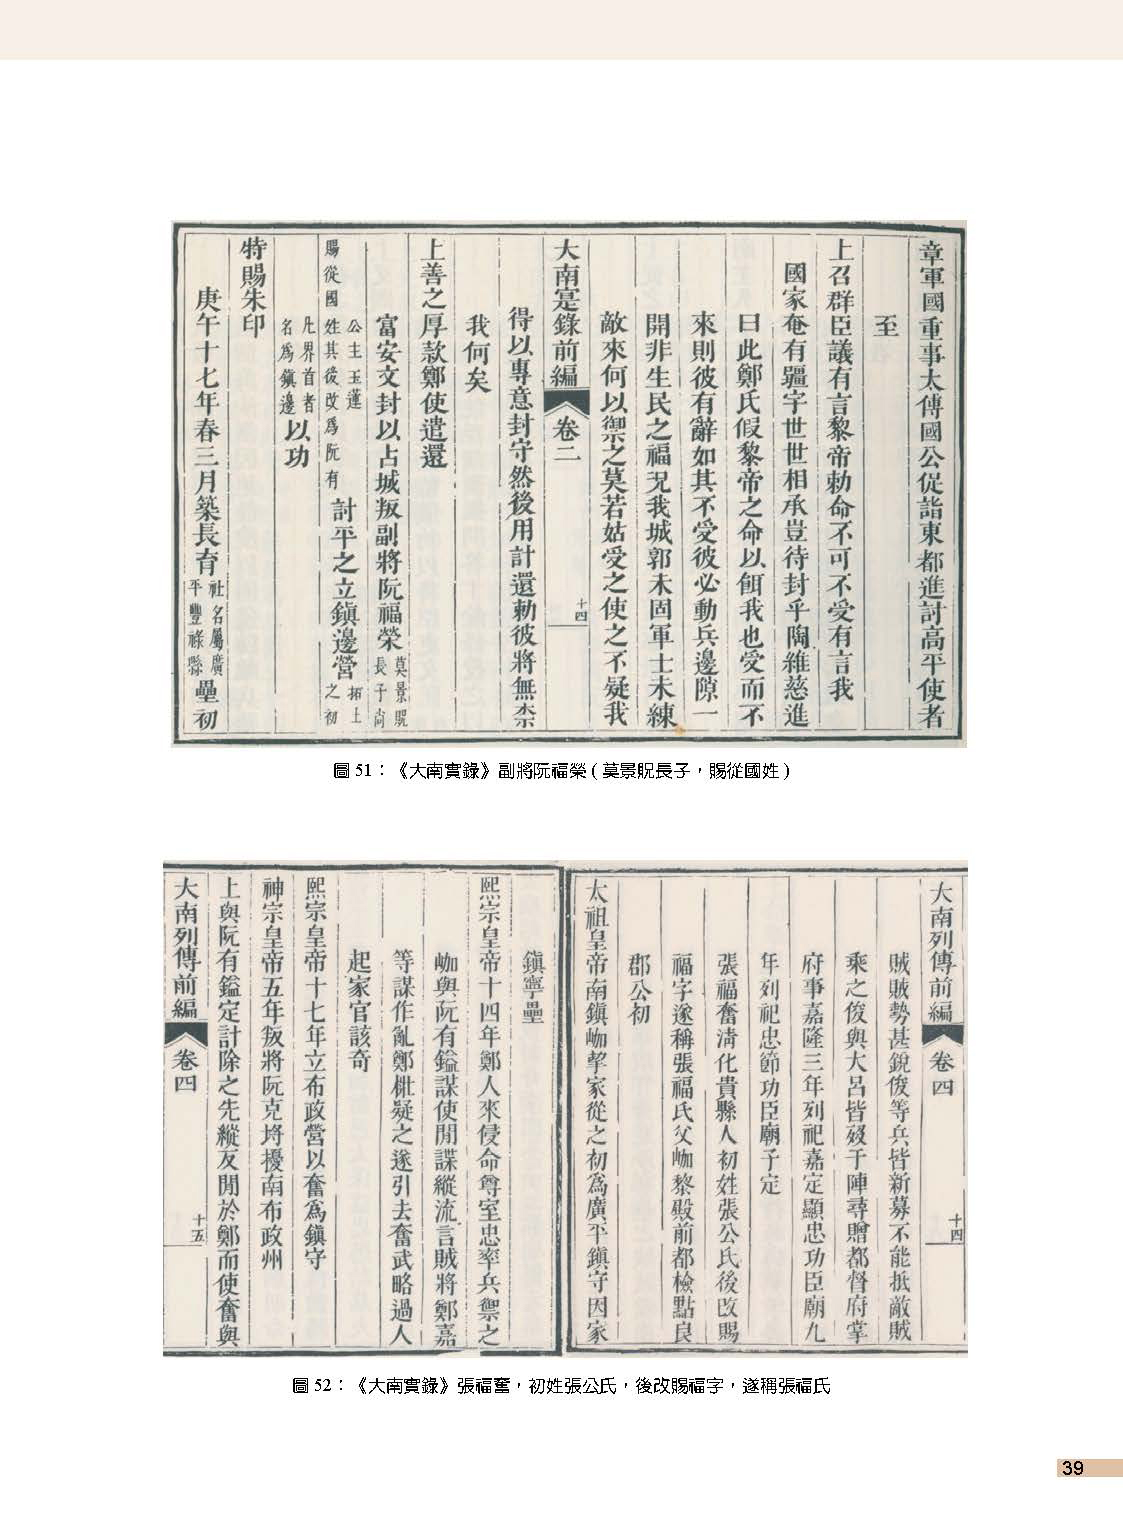 章軍國重事太傅國公促詣東都進討高平使者
至
上召群臣議有言黎帝勅命不可不受有言我
國家奄有疆宇世世相承豈待封乎陶維慈進
曰此鄭氏假黎帝之命以餌我也受而不
來則彼有辭如其不受彼必動兵邊隙一
開非生民之福況我城郭未固軍士未練
敵來何以禦之莫若姑受之使之不疑我
大南寔錄前編 卷二 十四
得以專意封守然後用計還勅彼將無柰
我何矣
上善之厚款鄭使遣還
富安文封以占城叛副將阮福榮莫景貺長子尚
公主玉蓮賜從國姓其後改為阮有討平之立鎮邊營拓土之初
凡界首者名為鎮邊以功
特賜朱印
庚午十七年春三月築長育社名屬廣平豐祿縣壘初
圖 51：《大南實錄》副將阮福榮 ( 莫景貺長子，賜從國姓 )
大南列傳前編 卷四 十四
賊賊勢甚銳俊等兵皆新募不能抵敵賊
乘之俊與大呂皆歿于陣尋贈都督府掌
府事嘉隆三年列祀嘉定顯忠功臣廟九
年列祀忠節功臣廟子定
張福奮清化貴縣人初姓張公氏後改賜
福字遂稱張福氏父岣黎殿前都檢點良
郡公初
太祖皇帝南鎮岣挈家從之初為廣平鎮守因家
鎮寧壘
熙宗皇帝十四年鄭人來侵命尊室忠率兵禦之
岣與阮有鎰謀使閒諜縱流言賊將鄭嘉
等謀作亂鄭棍疑之遂引去奮武略過人
起家官該奇
熙宗皇帝十七年立布政營以奮為鎮守
神宗皇帝五年叛將阮克㙊擾南布政州
上與阮有鎰定計除之先縱反閒於鄭而使奮與
大南列傳前編 卷四 十五
圖 52：《大南實錄》張福奮，初姓張公氏，後改賜福字，遂稱張福氏
39